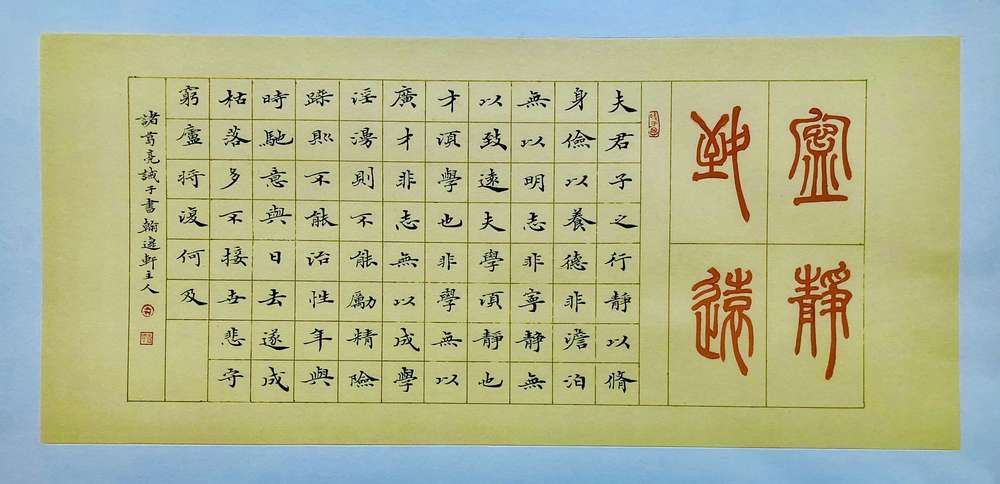 寧靜
致遠
夫君子之行靜以脩
身儉以養德非澹泊
無以明志非寧靜無
以致遠夫學須靜也
才須學也非學無以
廣才非志無以成學
淫漫則不能勵精險
躁則不能治性年與
時馳意與日去遂成
枯落多不接世悲守
窮廬將復何及
諸葛亮誡子書 翰軒主人